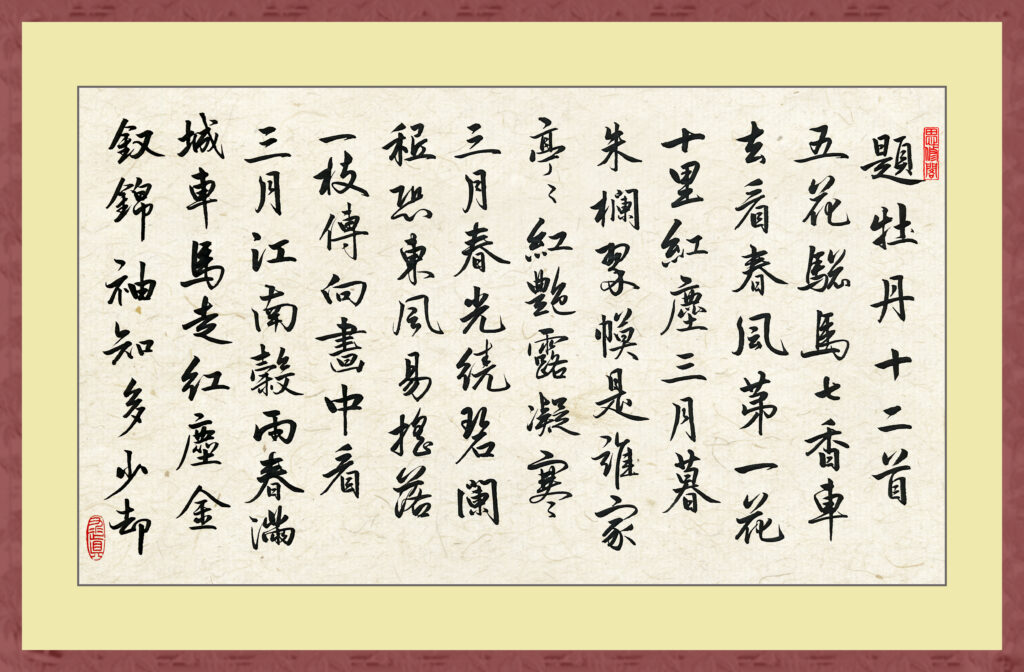 題牡丹十二首
五花驄馬七香車
去看春風第一花
十里紅塵三月暮
朱欄翠幙是誰家
亭〻紅艷露凝寒
三月春光繞碧闌
秪恐東風易搖落
一枝傳向畫中看
三月江南穀雨春滿
城車馬走紅塵金
釵錦袖知多少却